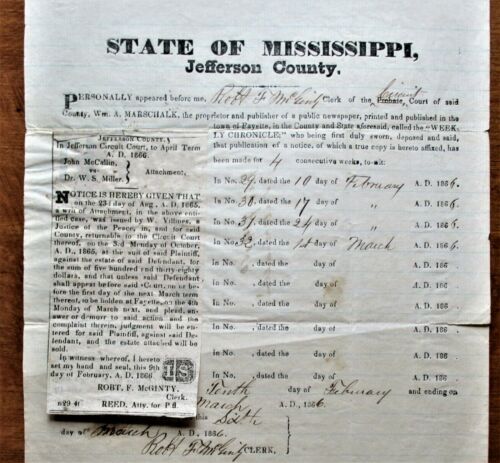 STATE OF MISSISSIPPI,
Jefferson County.
PERSONALLY appeared before me, Robt F. McGinty Clerk of the Probate Circuit Court of said
County, Wm. A. MARSCHALK, the proprietor and publisher of a public newspaper, printed and published in the
town of Fayette, in the County and State aforesaid, called the "WEEK-
LY CHRONICLE:" who being first duly sworn, deposed and said,
that publication of a notice, of which a true copy is hereto affixed, has
been made for 4 consecutive weeks, to-wit:
In No. 29, dated the 10 day of February A. D. 1866.
In No. 30, dated the 17 day of " A. D. 1866.
In No. 31, dated the 24 day of " A. D. 1866.
In No. 32, dated the 1st day of March A. D. 1866.
In No. , dated the day of A. D. 186 .
In No. , dated the day of A. D. 186 .
In No. , dated the day of A. D. 186 .
In No. , dated the day of A. D. 186 .
In No. , dated the day of A. D. 186 .
In No. , dated the day of A. D. 186 .
Tenth day of February and ending on
March A. D., 1866
this Sixth
day of March A. D. 1866.
Robt F. McGinty CLERK.
JEFFERSON COUNTY.
In Jefferson Circuit Court, to April Term
A. D. 1866.
John McCallin,
vs. Attachment,
Dr. W. S. Miller.
NOTICE IS HEREBY GIVEN THAT
on the 23d day of Aug., A. D. 1865,
a writ of Attachment, in the above entitled
case, was issued by W. Villines, a
Justice of the Peace, in and for said
County, returnable to the Circuit Court
thereof, on the 3rd Monday of October,
A. D., 1865, at the suit of said Plaintiff,
against the estate of said Defendant, for
the sum of five hundred and thirty eighty
dollars, and that unless said Defendant
shall appear before said Court, on or before
the first day of the next March term
thereof, to be holden at Fayette, on the 4th
Monday of March next, and plead, answer
or demur to said action and the
complaint therein, judgment will be entered
for said Plaintiff, against said Defendant,
and the estate attached will be
sold.
In witness whereof, I hereto
set my hand and seal, this 9th
day of February, A. D. 1866.
LS
ROBT. F. McGINTY,
Clerk.
n29 4t REED, Atty. for Pff.